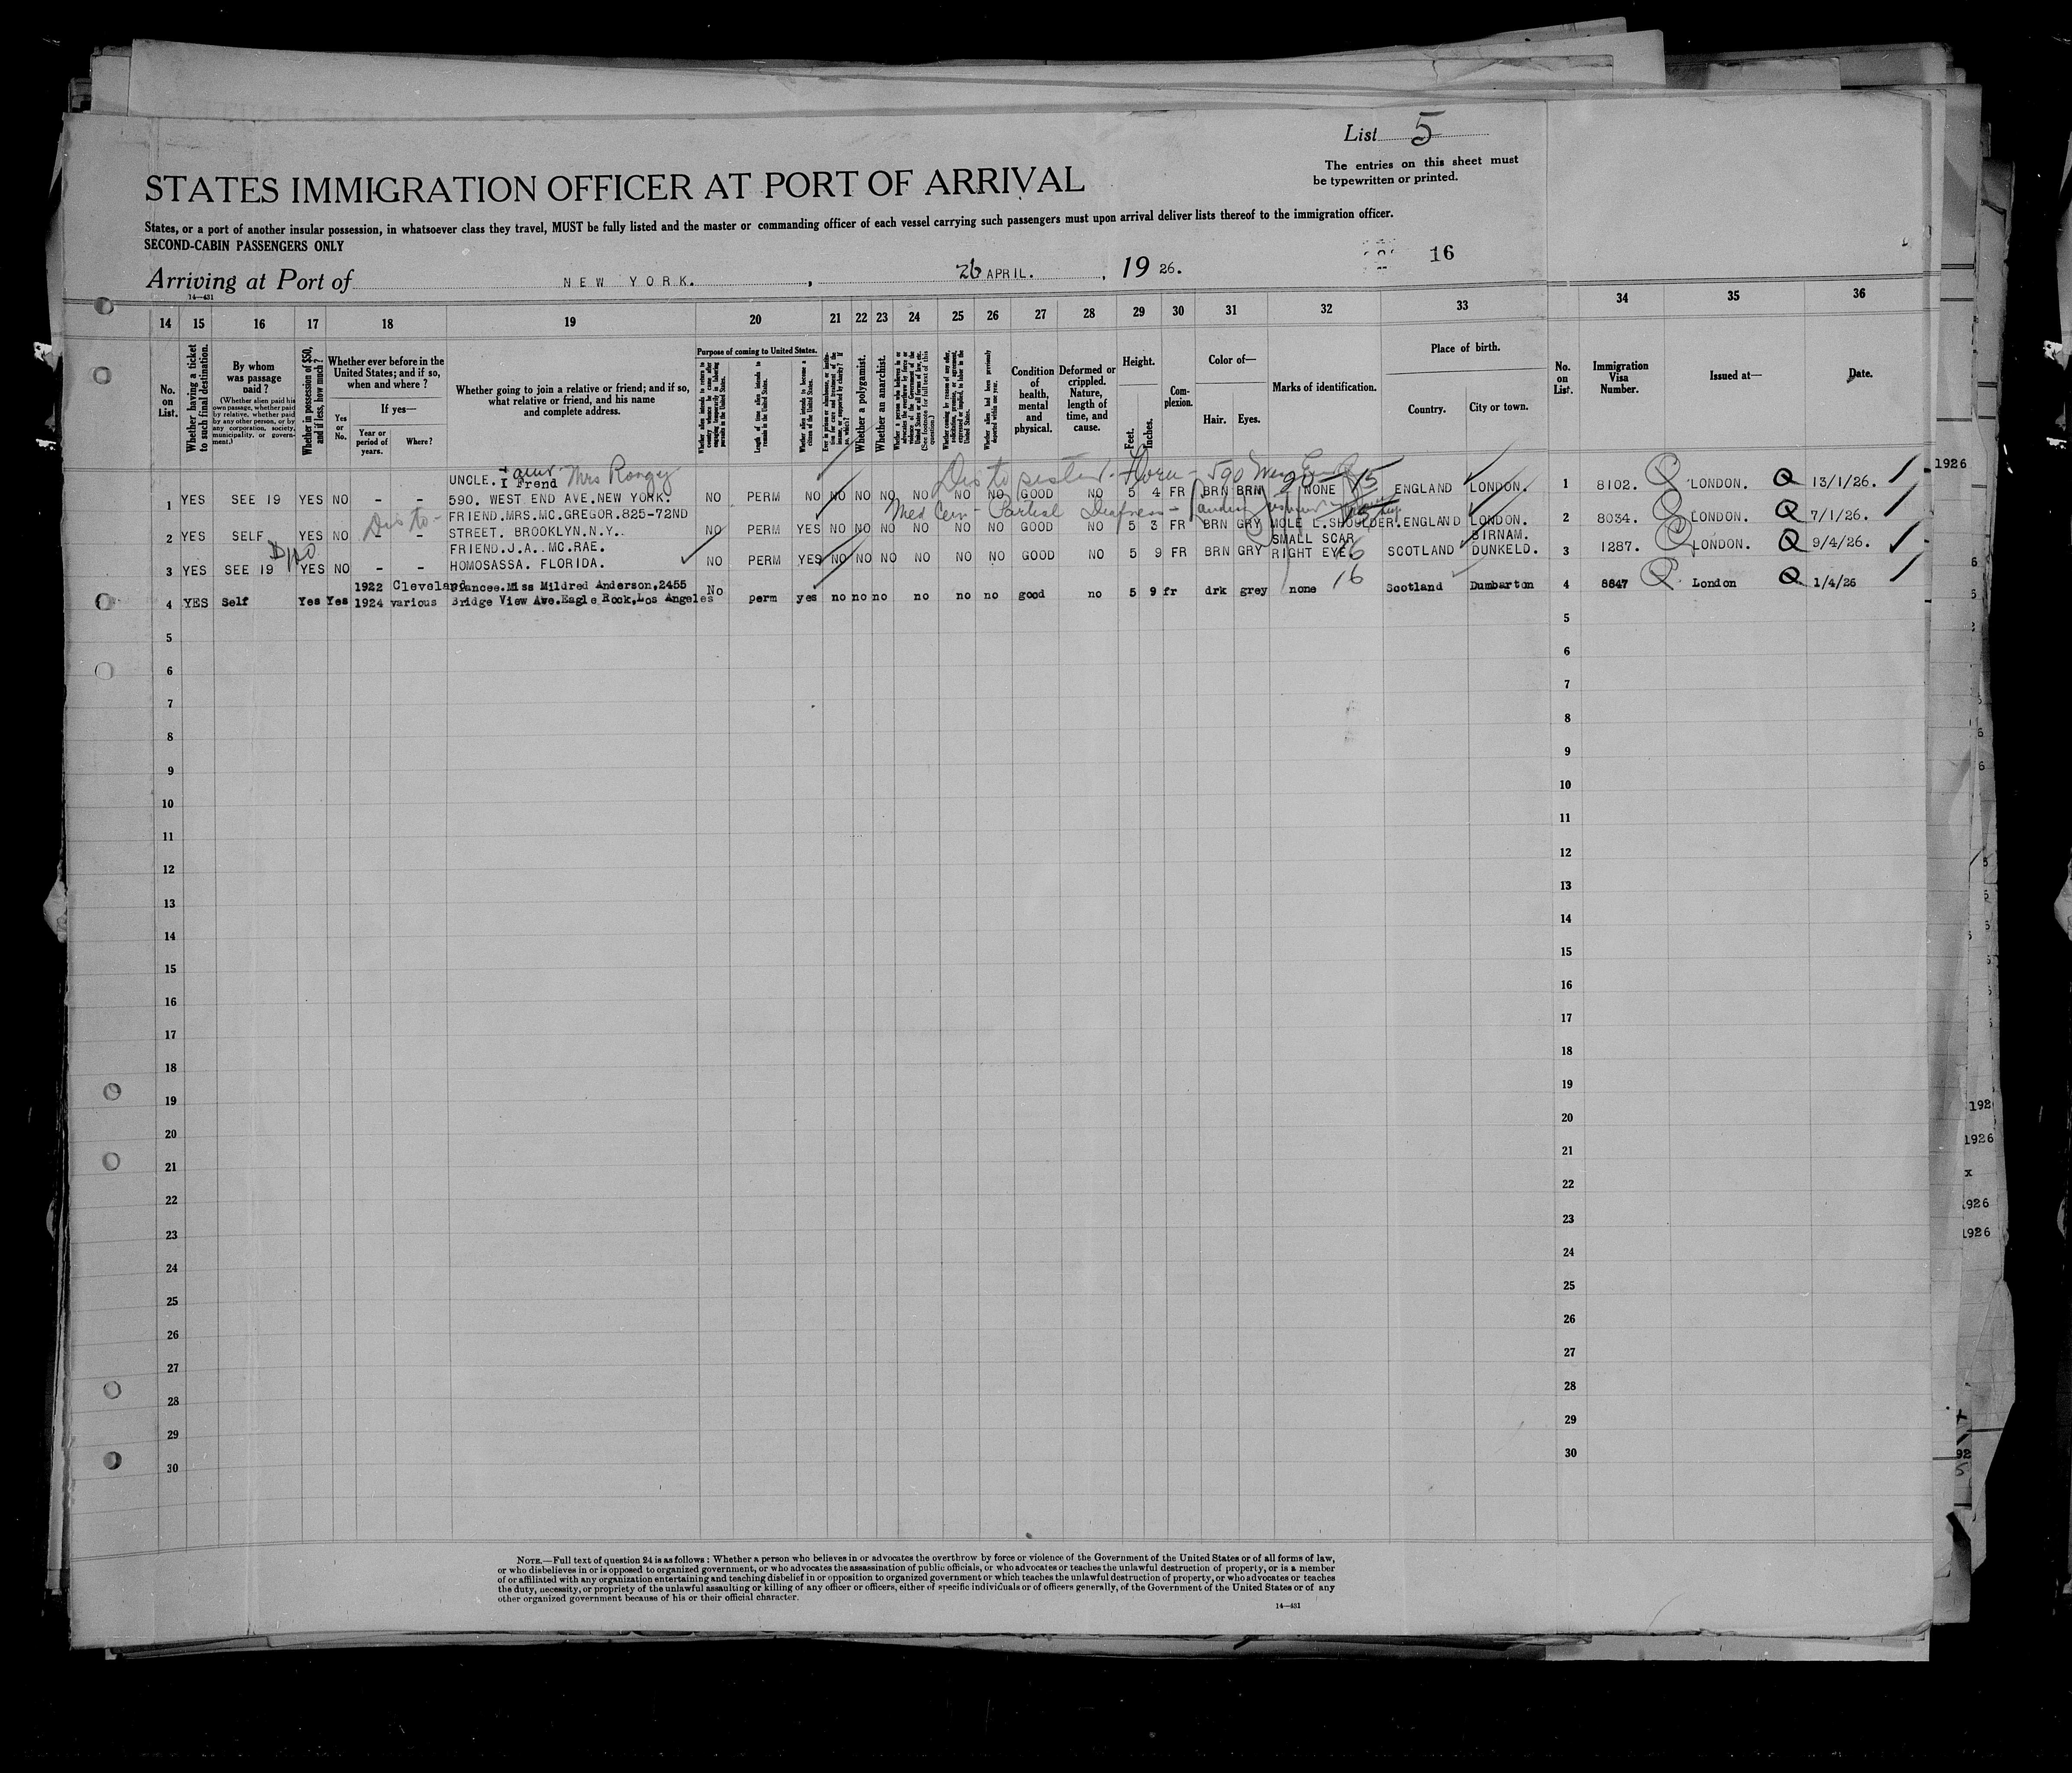 List 5
The entries on this sheet must
be typewritten or printed.
STATES IMMIGRATION OFFICER AT PORT OF ARRIVAL
States, or a port of another insular possession, in whatsoever class they travel, MUST be fully listed and the master or commanding officer of each vessel carrying such passengers must upon arrival deliver lists thereof to the immigration officer.
SECOND-CABIN PASSENGERS ONLY
16
Arriving at Port of NEW YORK. , 26 APRIL. , 19 26.
14—431
14 15 16 17 18 19 20 21 22 23 24 25 26 27 28 29 30 31 32 33 34 35 36
No. on List.
Whether having a ticket to such final destination.
By whom was passage paid?
(Whether alien paid his own passage, whether paid by relative, whether paid by any other person, or by any corporation, society, municipality, or government.)
Whether in possession of $50, and if less, how much?
Whether ever before in the United States; and if so, when and where?
Yes or No.
If yes—
Year or period of years.
Where?
Whether going to join a relative or friend; and if so, what relative or friend, and his name and complete address.
Purpose of coming to United States.
Whether alien intends to return to country whence he came after engaging temporarily in laboring pursuits in United States.
Length of time alien intends to remain in the United States.
Whether alien intends to become a citizen of the United States.
Whether a polygamist.
Whether an anarchist.
Condition of health, mental and physical.
Deformed or crippled. Nature, length of time, and cause.
Height.
Feet.
Inches.
Complexion.
Color of—
Hair. Eyes.
Marks of identification.
Place of birth.
Country. City or town.
No. on List.
Immigration Visa Number.
Issued at—
Date.
UNCLE. + aunt Mrs
I Frend
1 YES SEE 19 YES NO - - 590. WEST END AVE.NEW YORK. NO PERM NO NO NO NO NO NO NO GOOD NO 5 4 FR BRN BRN NONE ENGLAND LONDON. 1 8102. LONDON. Q 13/1/26.
Dis to sister 590 West End
Med Cer - Partial Deafness -
FRIEND.MRS.MC.GREGOR.825-72ND
2 YES SELF YES NO - - STREET. BROOKLYN.N.Y. NO PERM YES NO NO NO NO NO NO GOOD NO 5 3 FR BRN GRY MOLE L.SHOULDER. ENGLAND LONDON. 2 8034. LONDON. Q 7/1/26.
Dis to-
FRIEND.J.A. MC.RAE. SMALL SCAR BIRNAM.
3 YES SEE 19 YES NO - - HOMOSASSA. FLORIDA. NO PERM YES NO NO NO NO NO NO GOOD NO 5 9 FR BRN GRY RIGHT EYE. SCOTLAND DUNKELD. 3 1287. LONDON. Q 9/4/26.
16
1922 Cleveland Fiancee.Miss Mildred Anderson,2455
4 YES Self Yes Yes 1924 various Bridge View Ave.Eagle Rock,Los Angeles No perm yes no no no no no no good no 5 9 fr drk grey none Scotland Dumbarton 4 8847 London Q 1/4/26
5 5
6 6
7 7
8 8
9 9
10 10
11 11
12 12
13 13
14 14
15 15
16 16
17 17
18 18
19 19
20 20
21 21
22 22
23 23
24 24
25 25
26 26
27 27
28 28
29 29
30 30
1926
192
1926
x
1926
1926
NOTE.—Full text of question 24 is as follows: Whether a person who believes in or advocates the overthrow by force or violence of the Government of the United States or of all forms of law,
or who disbelieves in or is opposed to organized government, or who advocates the assassination of public officials, or who advocates or teaches the unlawful destruction of property, or is a member
of or affiliated with any organization entertaining and teaching disbelief in or opposition to organized government or which teaches the unlawful destruction of property, or who advocates or teaches
the duty, necessity, or propriety of the unlawful assaulting or killing of any officer or officers, either of specific individuals or of officers generally, of the Government of the United States or of any
other organized government because of his or their official character.
14—431